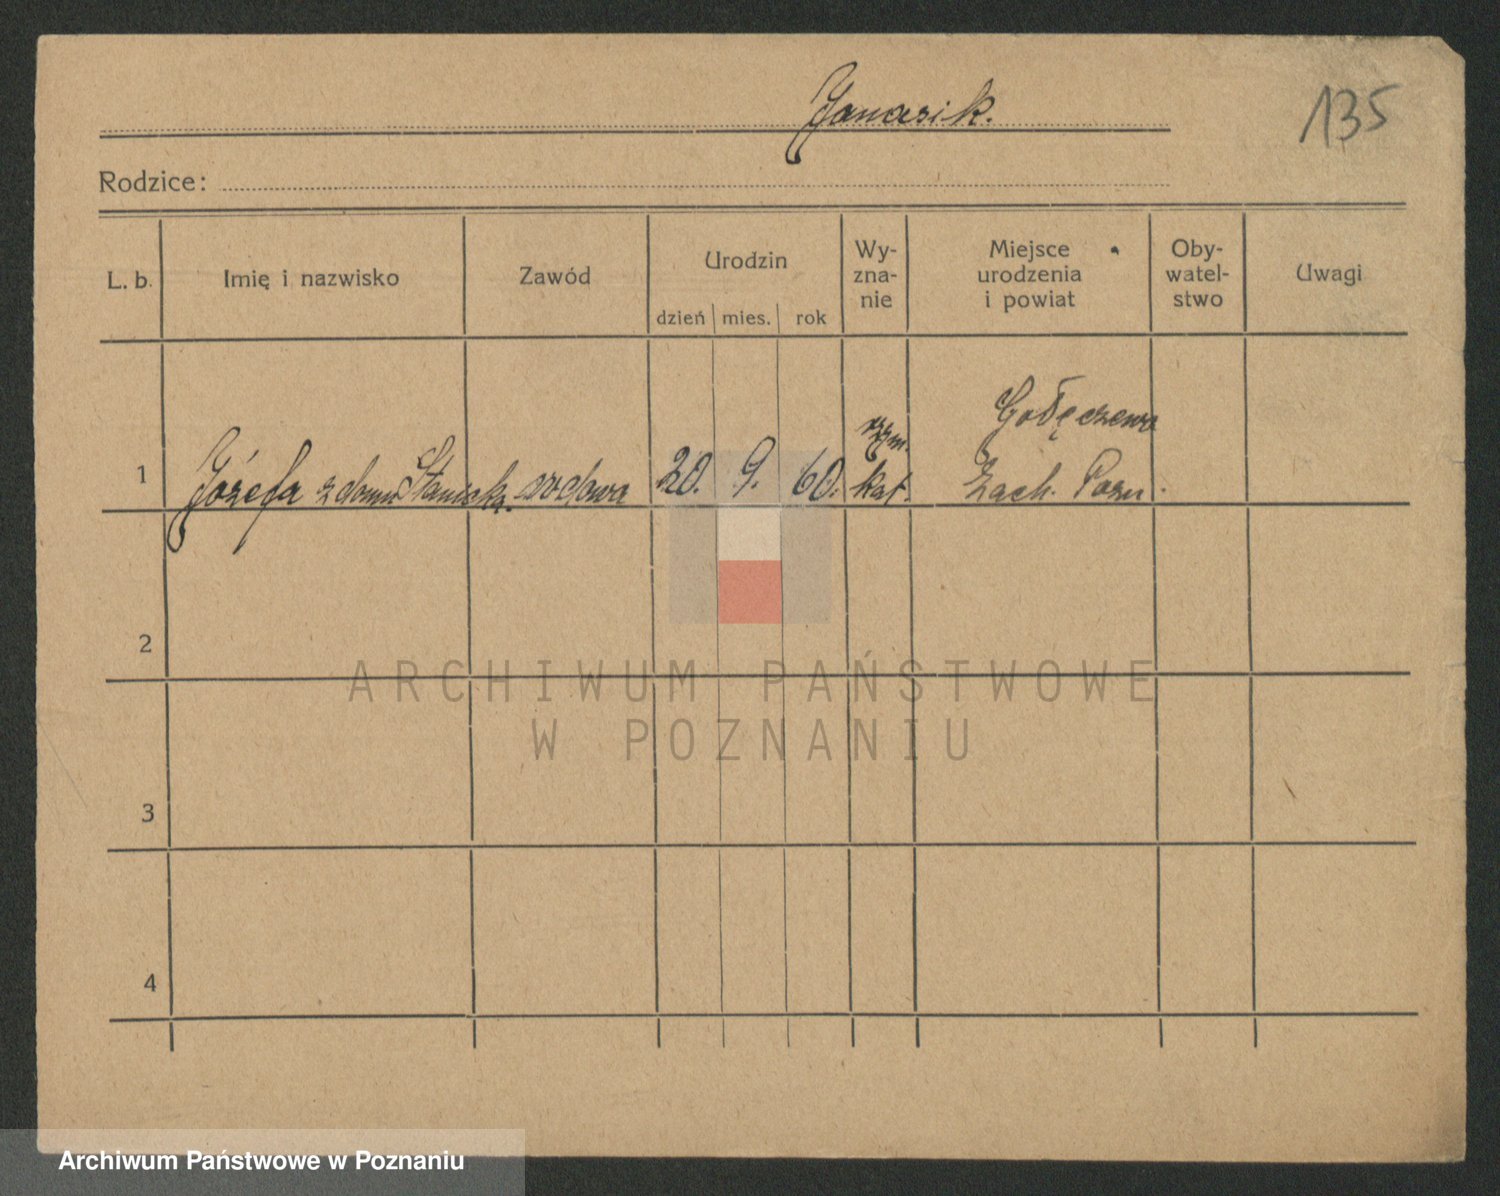 Janasik.
135
Rodzice:
L. b. Imię i nazwisko Zawód Urodzin Wy-znanie Miejsce urodzenia i powiat Oby-watel-stwo Uwagi
dzień mies. rok
Gołęczewo
1 Józefa z domu Stanicka. wdowa 20. 9. 60. rzym. kat. Zach. Pozn.
2
3
4
ARCHIWUM PAŃSTWOWE
W POZNANIU
Archiwum Państwowe w Poznaniu